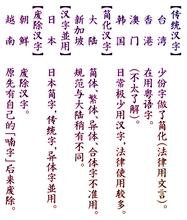 传统汉字
台湾 少份字做了简化(法律用文言)。
香港 在用粤语字。
澳门 (不太了解)
韩国 日常极少用汉字,法律使用较多。
简化汉字
大陆 简体,繁体,异体,合体字不准用。
新加坡 规范与大陆稍有不同。
汉字並用
日本 日本简字,传统字,异体字並用。
废除汉字
朝鲜 废除汉字。
越南 原先有自己的「喃字」后来废除。